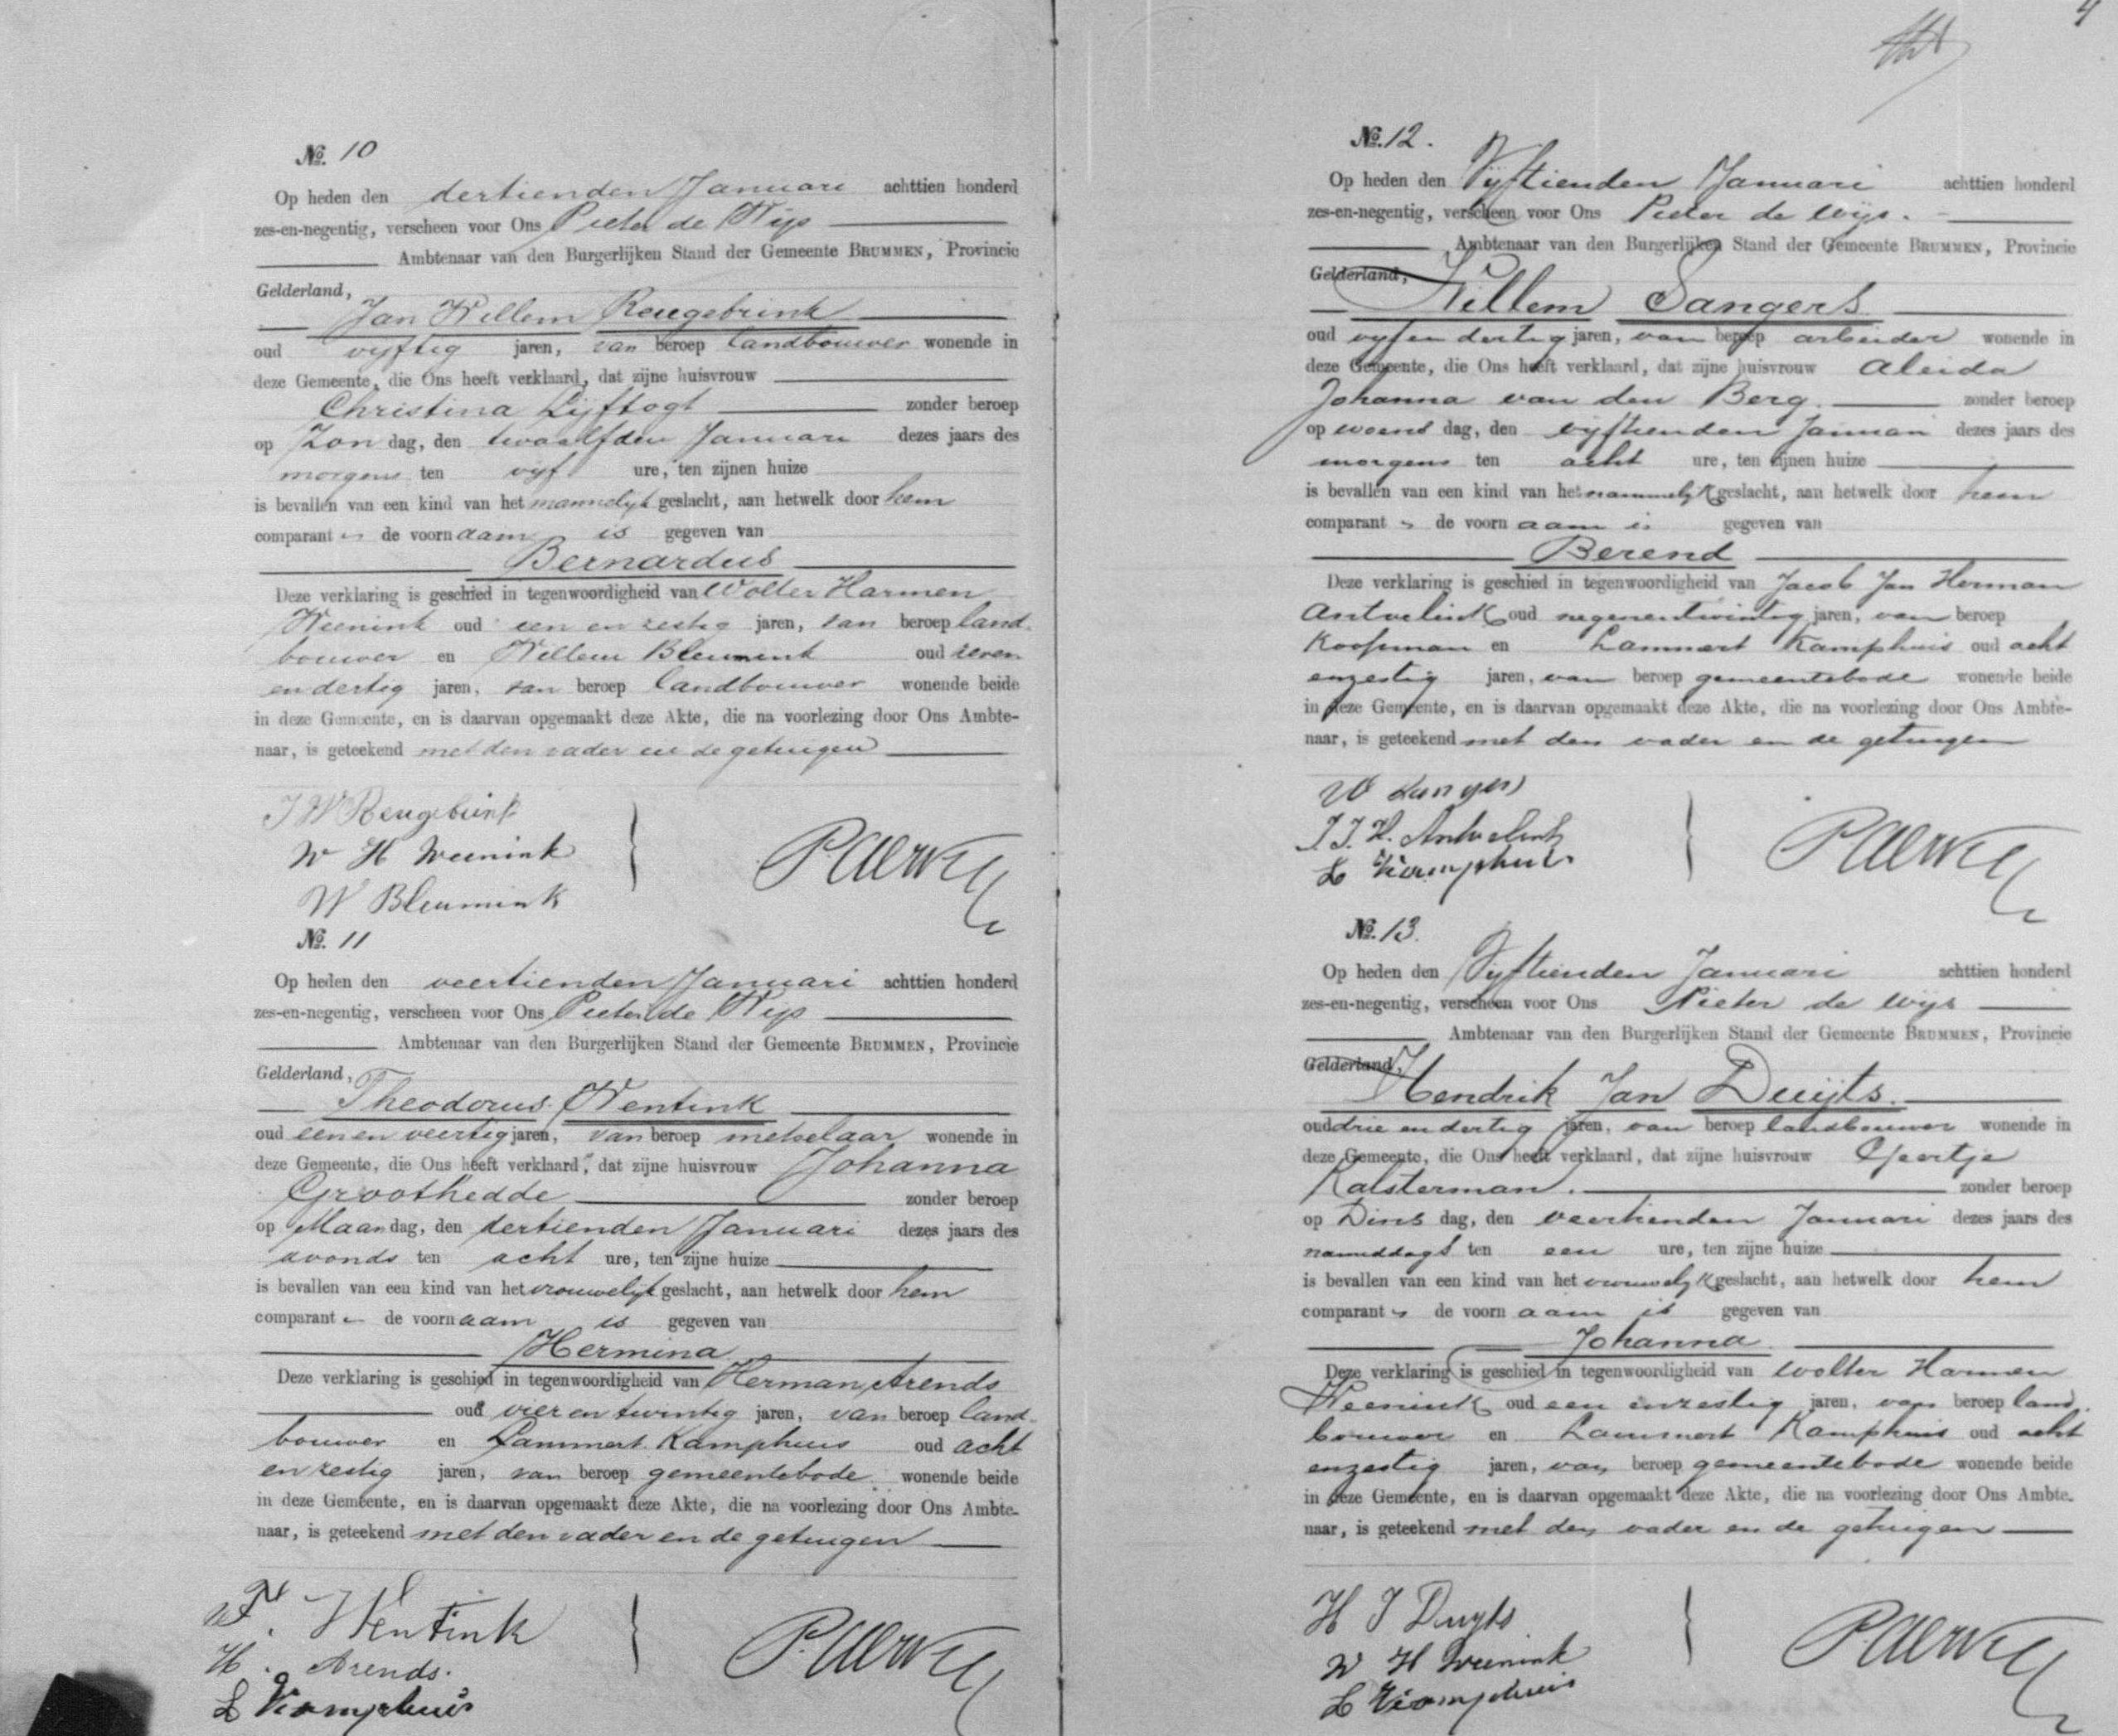 No. 10
Op heden den dertienden Januari achttien honderd
zes-en-negentig, verscheen voor Ons Pieter de Wijs
Ambtenaar van den Burgerlijken Stand der Gemeente BRUMMEN, Provincie
Gelderland,
Jan Willem Reugebrink
oud vijftig jaren, van beroep landbouwer wonende in
deze Gemeente, die Ons heeft verklaard, dat zijne huisvrouw
Christina Lijftogt zonder beroep
op Zondag, den twaalfden Januari dezes jaars des
morgens ten vijf ure, ten zijnen huize
is bevallen van een kind van het mannelijk geslacht, aan hetwelk door hem
comparant de voornaam is gegeven van
Bernardus
Deze verklaring is geschied in tegenwoordigheid van Wolter Harmen
Weenink oud een en zestig jaren, van beroep land-
bouwer en Willem Bleumink oud zeven
en dertig jaren, van beroep landbouwer wonende beide
in deze Gemeente, en is daarvan opgemaakt deze Akte, die na voorlezing door Ons Ambte-
naar, is geteekend met den vader en de getuigen
J W Reugebrink
W H Weenink
W Bleumink
No. 11
Op heden den veertienden Januari achttien honderd
zes-en-negentig, verscheen voor Ons Pieter de Wijs
Ambtenaar van den Burgerlijken Stand der Gemeente BRUMMEN, Provincie
Gelderland,
Theodorus Wentink
oud een en veertig jaren, van beroep metselaar wonende in
deze Gemeente, die Ons heeft verklaard, dat zijne huisvrouw Johanna
Groothedde zonder beroep
op Maandag, den dertienden Januari dezes jaars des
avonds ten acht ure, ten zijne huize
is bevallen van een kind van het vrouwelijk geslacht, aan hetwelk door hem
comparant de voornaam is gegeven van
Hermina
Deze verklaring is geschied in tegenwoordigheid van Herman Arends
oud vier en twintig jaren, van beroep land-
bouwer en Lammert Kamphuis oud acht
en zestig jaren, van beroep gemeentebode wonende beide
in deze Gemeente, en is daarvan opgemaakt deze Akte, die na voorlezing door Ons Ambte-
naar, is geteekend met den vader en de getuigen
Wentink
H. Arends.
L Kamphuis
4
No. 12.
Op heden den Vijftienden Januari achttien honderd
zes-en-negentig, verscheen voor Ons Pieter de Wijs.
Ambtenaar van den Burgerlijken Stand der Gemeente BRUMMEN, Provincie
Gelderland,
Willem Sangers
oud vijf en dertig jaren, van beroep arbeider wonende in
deze Gemeente, die Ons heeft verklaard, dat zijne huisvrouw Aleida
Johanna van den Berg. zonder beroep
op woensdag, den vijftienden Januari dezes jaars des
morgens ten acht ure, ten zijnen huize
is bevallen van een kind van het mannelijk geslacht, aan hetwelk door hem
comparant de voornaam is gegeven van
Berend
Deze verklaring is geschied in tegenwoordigheid van Jacob Jan Herman
Antvelink oud negenentwintig jaren, van beroep
Koopman en Lammert Kamphuis oud acht
enzestig jaren, van beroep gemeentebode wonende beide
in deze Gemeente, en is daarvan opgemaakt deze Akte, die na voorlezing door Ons Ambte-
naar, is geteekend met den vader en de getuigen
W Sangers
J. J. H. Antvelink
L Kamphuis
No. 13.
Op heden den Vijftienden Januari achttien honderd
zes-en-negentig, verscheen voor Ons Pieter de Wijs
Ambtenaar van den Burgerlijken Stand der Gemeente BRUMMEN, Provincie
Gelderland,
Hendrik Jan Duijts.
oud drie en dertig jaren, van beroep landbouwer wonende in
deze Gemeente, die Ons heeft verklaard, dat zijne huisvrouw Geertje
Kalsterman. zonder beroep
op Dinsdag, den veertienden Januari dezes jaars des
namiddags ten een ure, ten zijne huize
is bevallen van een kind van het vrouwelijk geslacht, aan hetwelk door hem
comparant de voornaam is gegeven van
Johanna
Deze verklaring is geschied in tegenwoordigheid van Wolter Harmen
Weenink oud een enzestig jaren, van beroep land-
bouwer en Lammert Kamphuis oud acht
enzestig jaren, van beroep gemeentebode wonende beide
in deze Gemeente, en is daarvan opgemaakt deze Akte, die na voorlezing door Ons Ambte-
naar, is geteekend met den vader en de getuigen
H J Duyts
W H Weenink
L Kamphuis